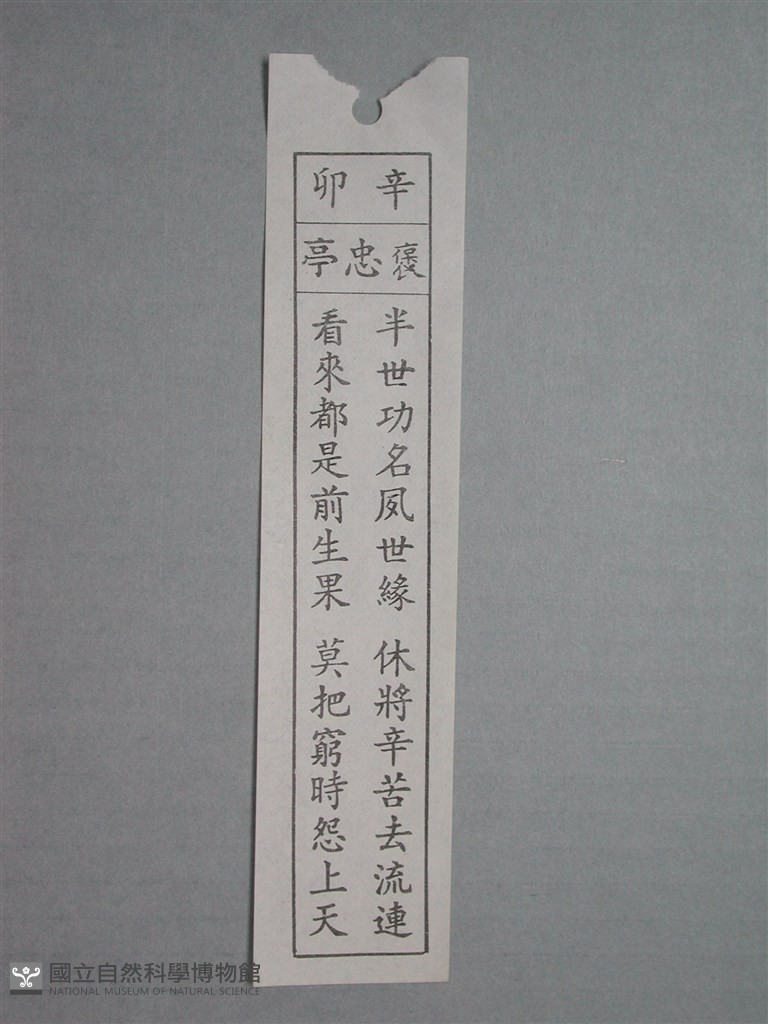 辛卯
褒忠亭
半世功名夙世緣 休將辛苦去流連
看來都是前生果 莫把窮時怨上天
國立自然科學博物館
NATIONAL MUSEUM OF NATURAL SCIENCE